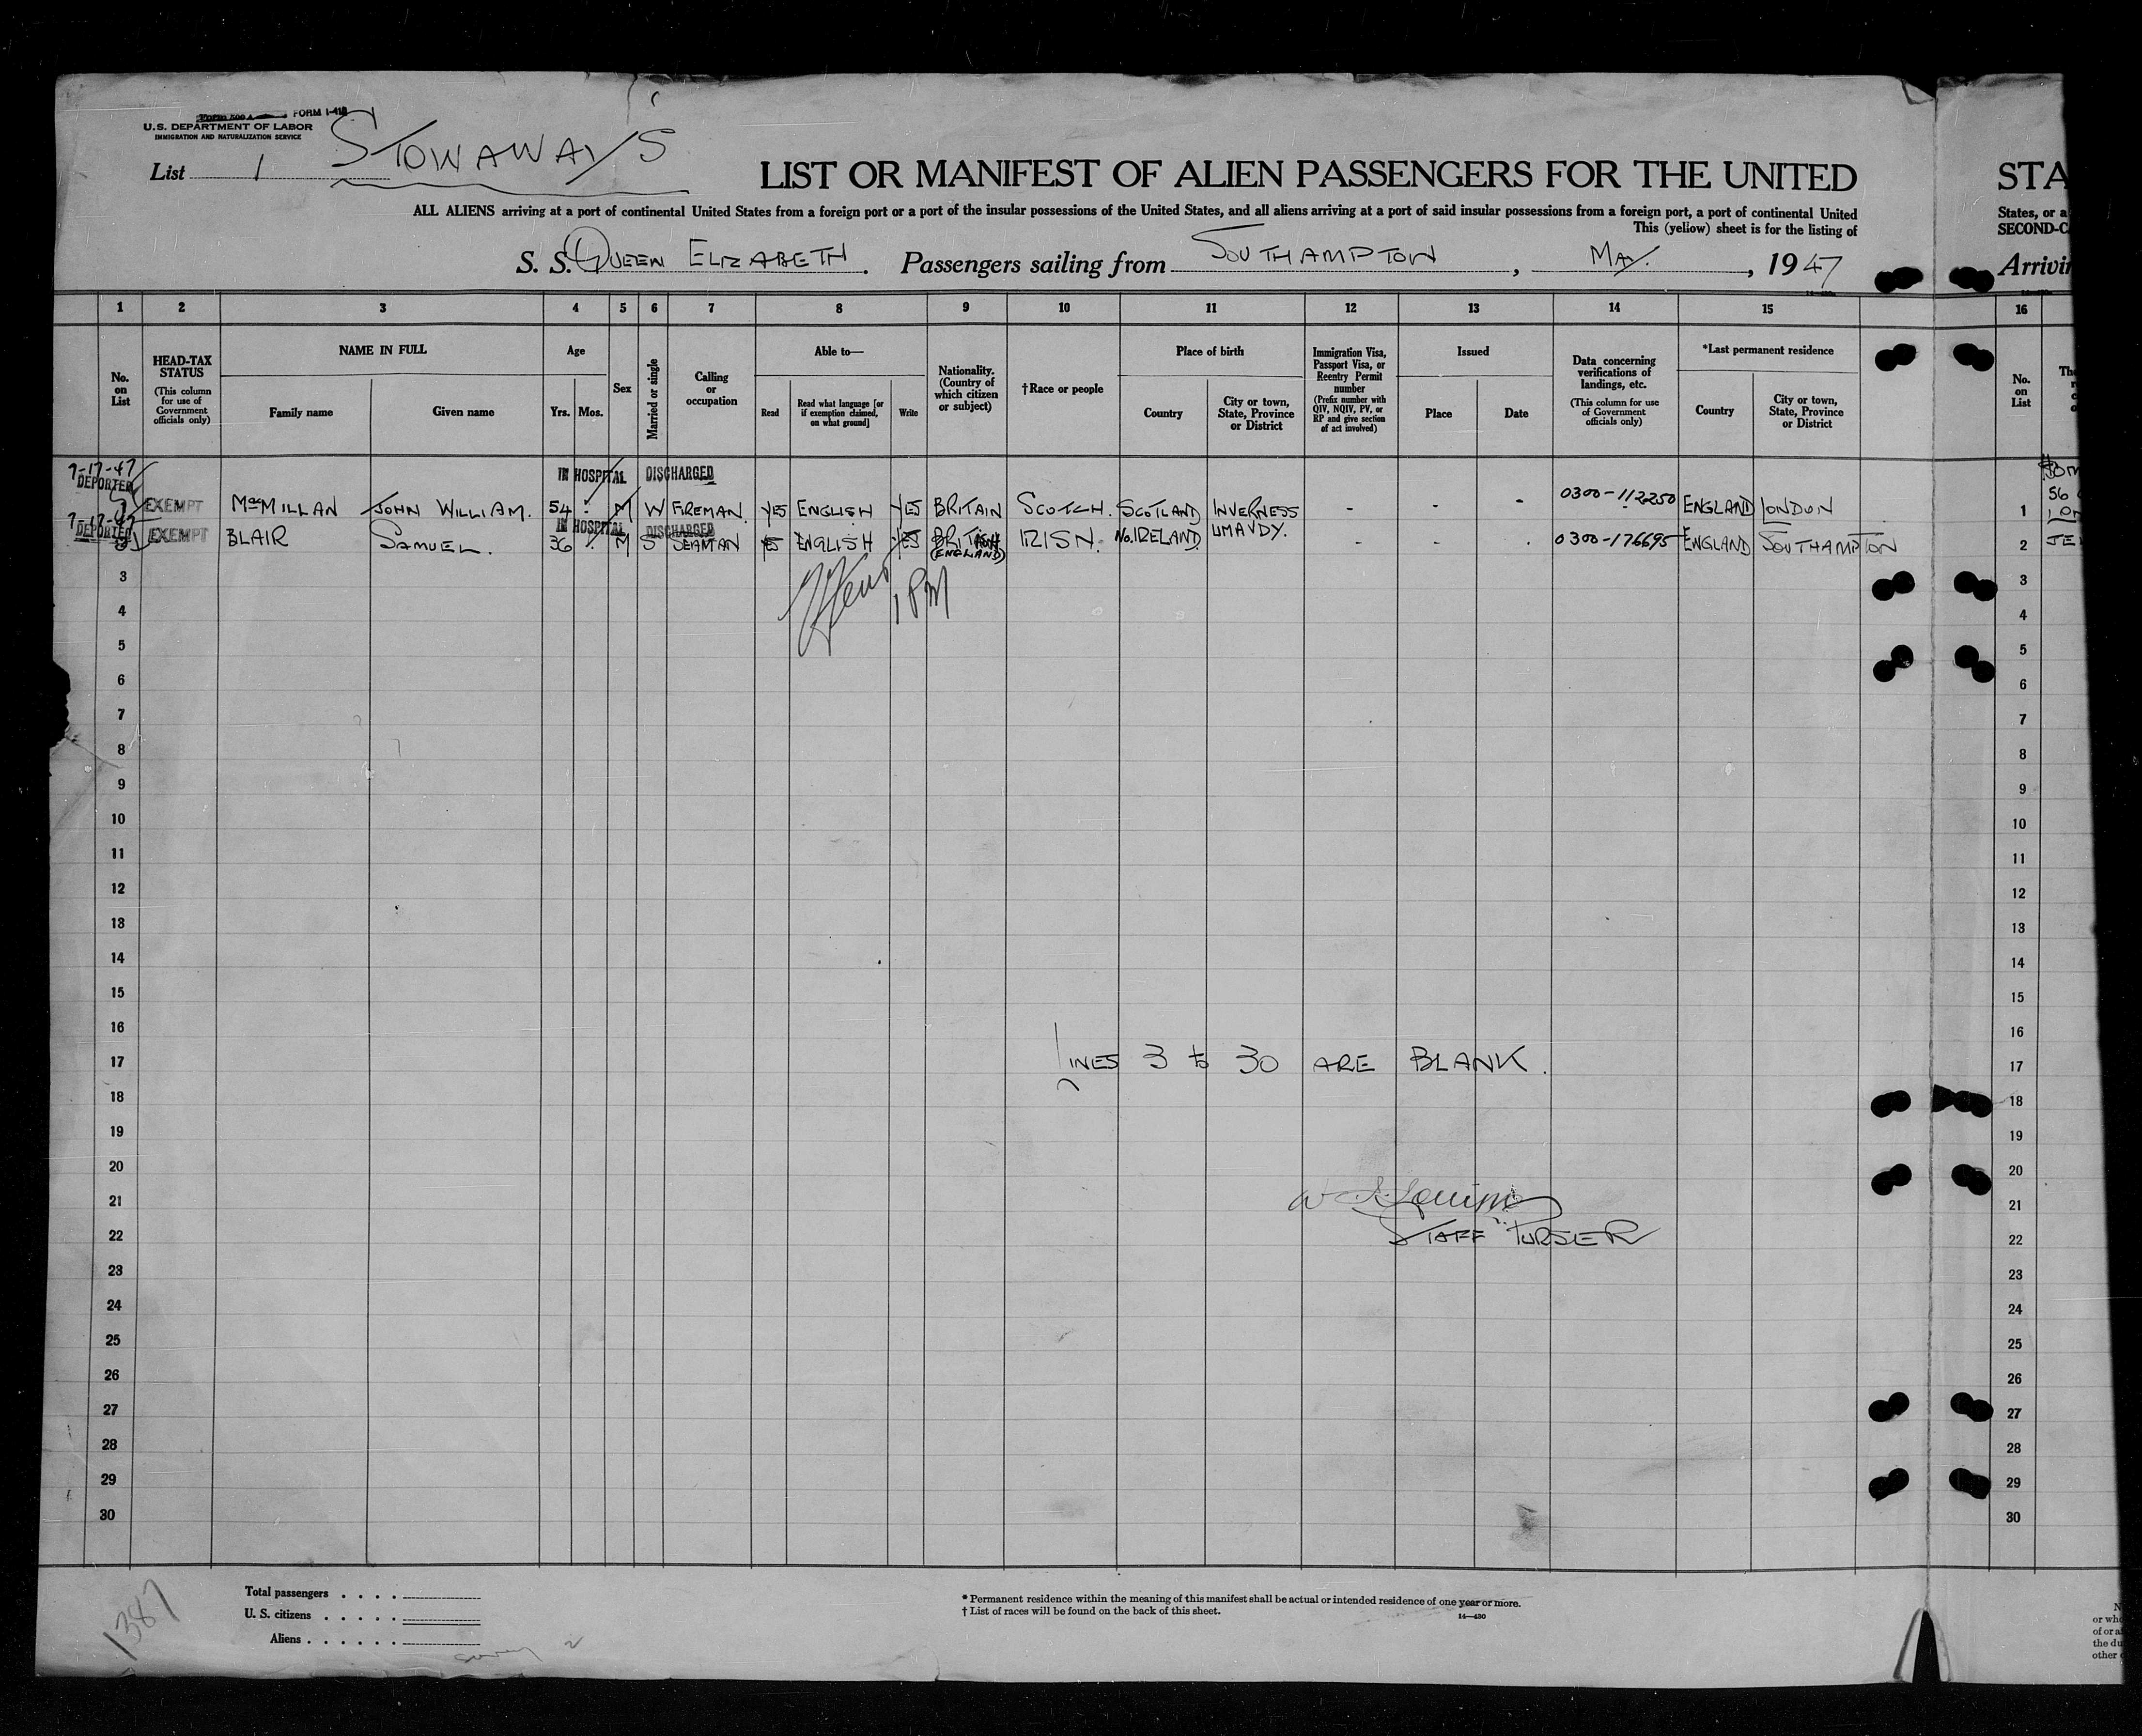 FORM I-418
U.S. DEPARTMENT OF LABOR
IMMIGRATION AND NATURALIZATION SERVICE
List 1
STOWAWAYS
LIST OR MANIFEST OF ALIEN PASSENGERS FOR THE UNITED
STA
ALL ALIENS arriving at a port of continental United States from a foreign port or a port of the insular possessions of the United States, and all aliens arriving at a port of said insular possessions from a foreign port, a port of continental United
States, or a
This (yellow) sheet is for the listing of
SECOND-C
S. S. QUEEN ELIZABETH. Passengers sailing from SOUTHAMPTON, MAY., 1947
Arrivi
1 2 3 4 5 6 7 8 9 10 11 12 13 14 15 16
No. on List
HEAD-TAX STATUS
(This column for use of Government officials only)
NAME IN FULL
Family name
Given name
Age
Yrs. Mos.
Sex
Married or single
Calling or occupation
Able to—
Read
Read what language [or if exemption claimed, on what ground]
Write
Nationality. (Country of which citizen or subject)
†Race or people
Place of birth
Country
City or town, State, Province or District
Immigration Visa, Passport Visa, or Reentry Permit number
(Prefix number with QIV, NQIV, PV, or RP and give section of act involved)
Issued
Place
Date
Data concerning verifications of landings, etc.
(This column for use of Government officials only)
*Last permanent residence
Country
City or town, State, Province or District
No. on List
7-17-47 DEPORTED IN HOSPITAL DISCHARGED
EXEMPT McMILLAN JOHN WILLIAM. 54 M W FIREMAN. YES ENGLISH YES BRITAIN SCOTCH. SCOTLAND INVERNESS - - - 0300-112250 ENGLAND LONDON 1 56
7-17-47 DEPORTED IN HOSPITAL DISCHARGED
EXEMPT BLAIR SAMUEL. 36 M S SEAMAN YES ENGLISH YES BRITISH (ENGLAND) IRISN. No. IRELAND. LIMAVDY. - - . 0300-176695 ENGLAND SOUTHAMPTON 2 JE
1 PM
3 3
4 4
5 5
6 6
7 7
8 8
9 9
10 10
11 11
12 12
13 13
14 14
15 15
16 16
17 LINES 3 to 30 ARE BLANK. 17
18 18
19 19
20 20
21 21
22 STAFF PURSER 22
23 23
24 24
25 25
26 26
27 27
28 28
29 29
30 30
1387
Total passengers . . . .
U. S. citizens . . . . .
Aliens . . . . . .
2
* Permanent residence within the meaning of this manifest shall be actual or intended residence of one year or more.
† List of races will be found on the back of this sheet.
14—430
N
or who
of or a
the du
other